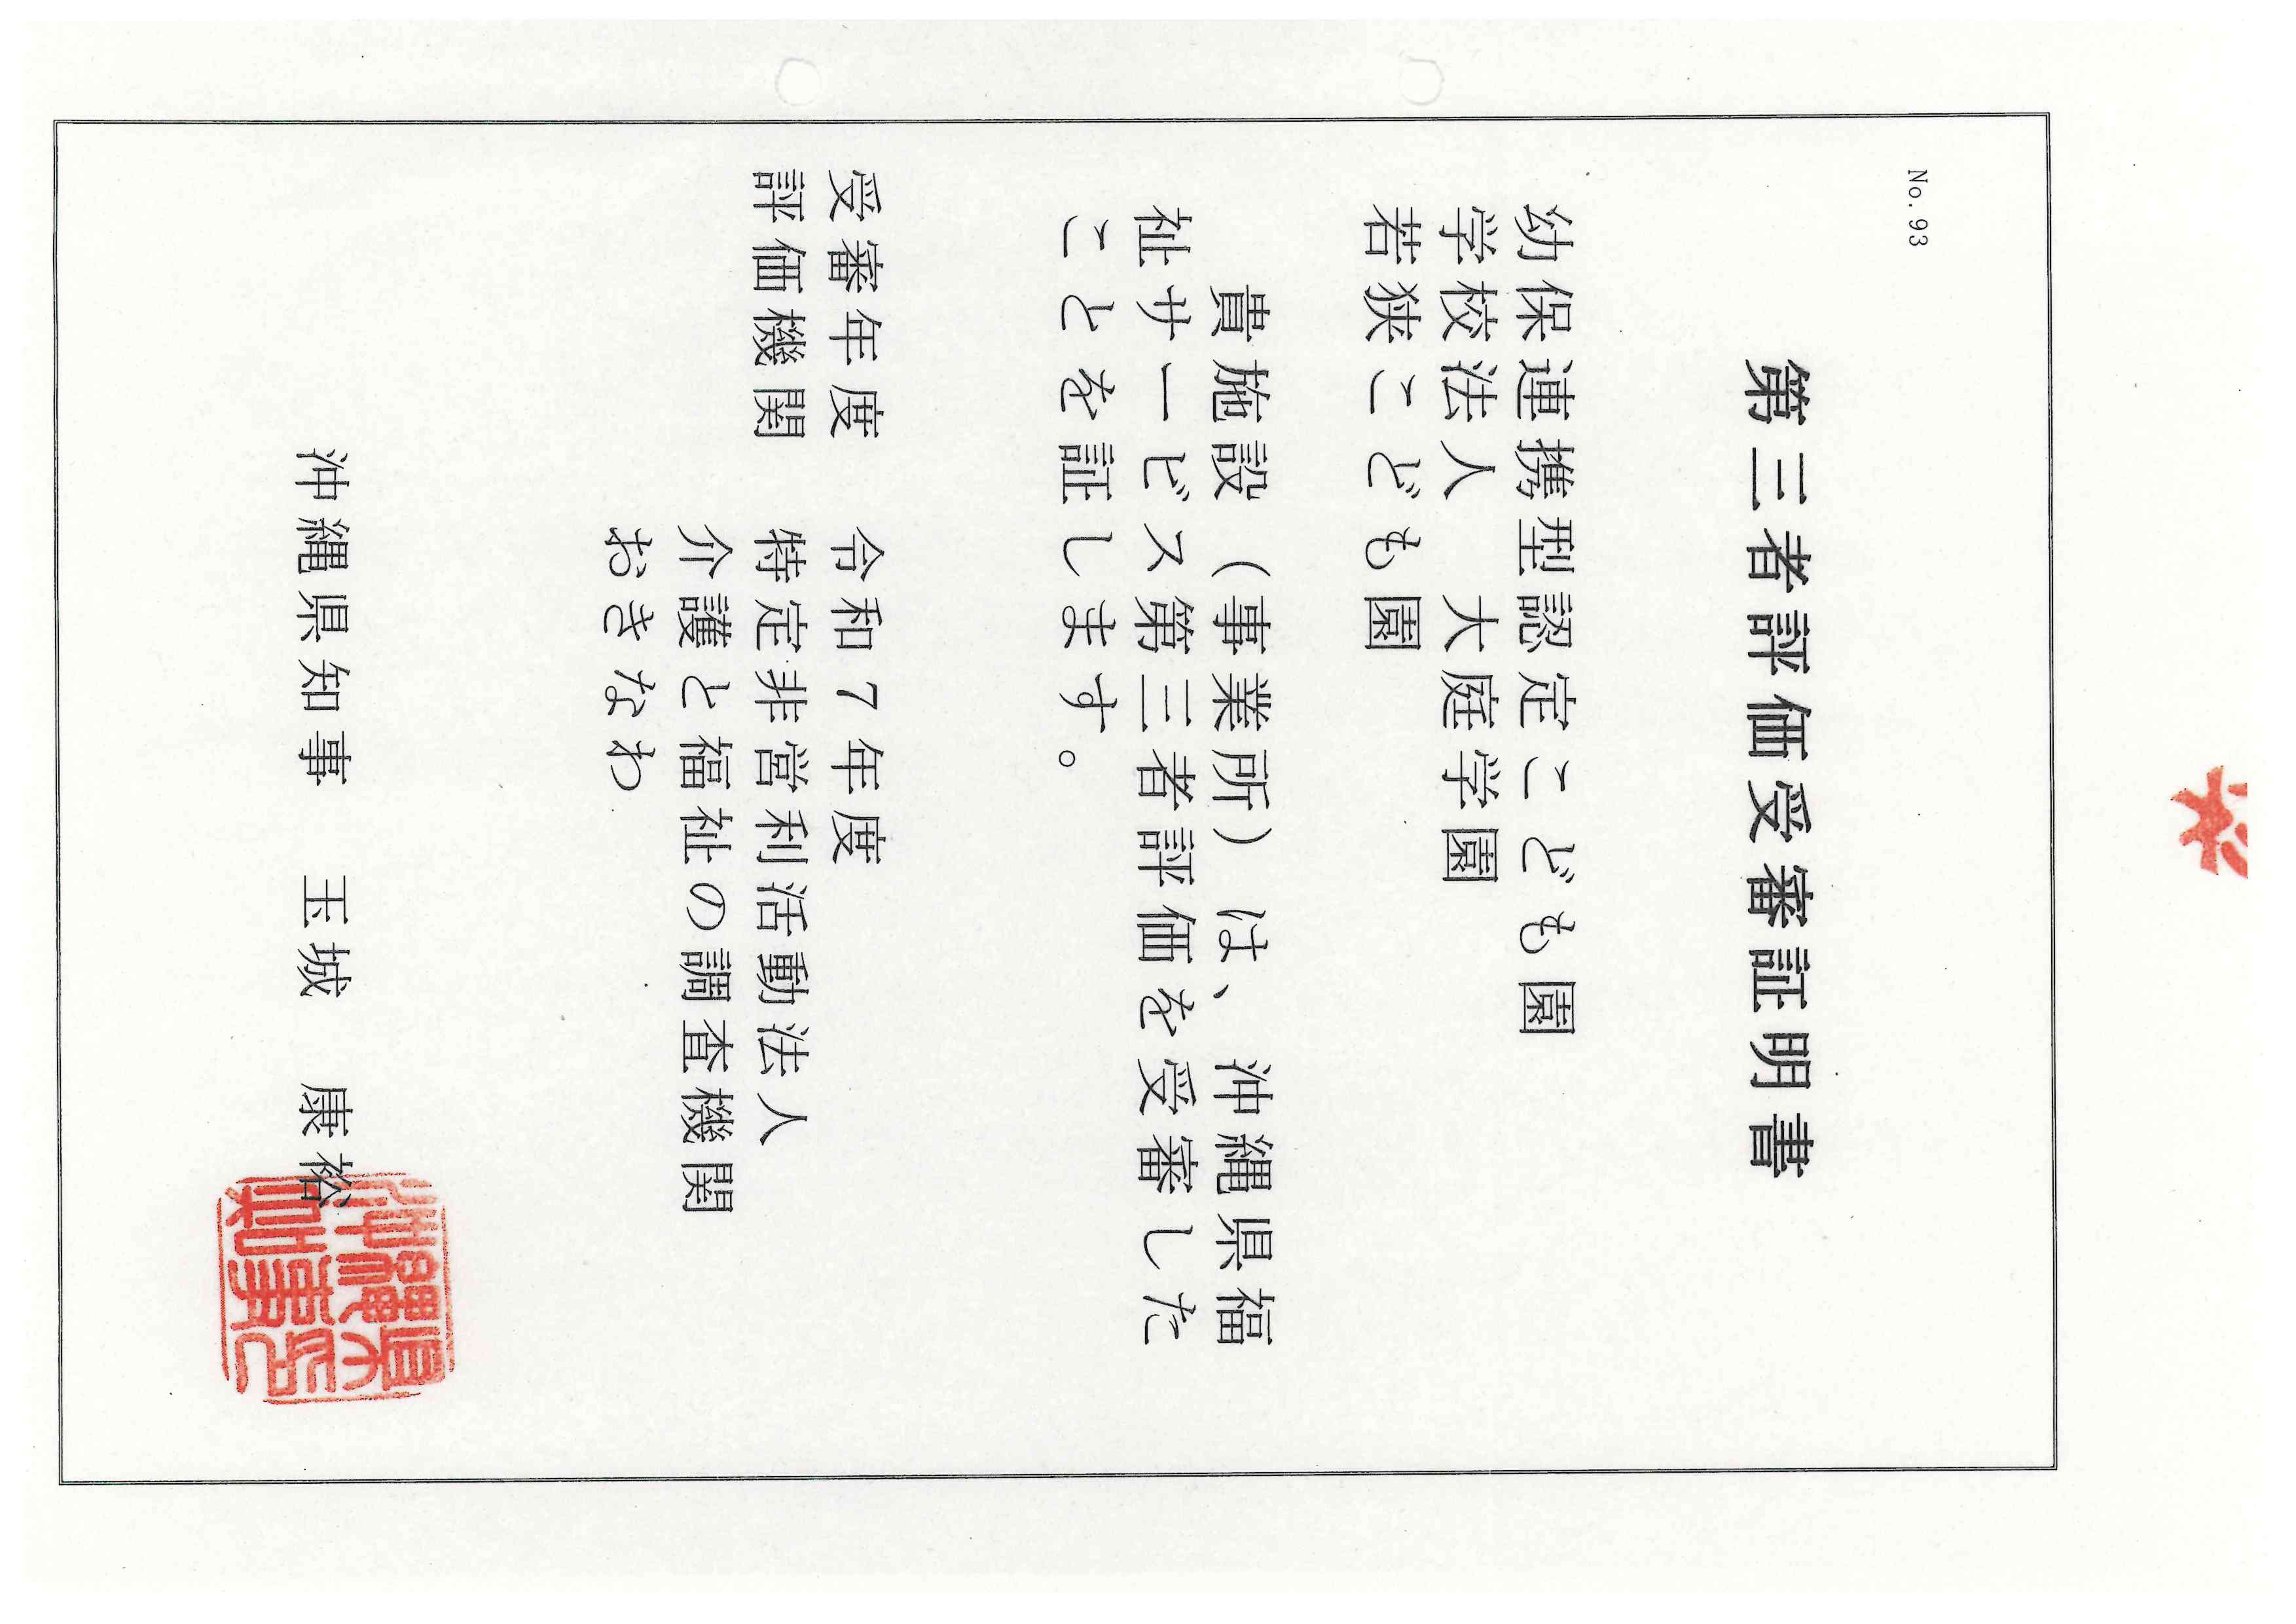 No.93
第三者評価受審証明書
幼保連携型認定こども園
学校法人　大庭学園
若狭こども園
貴施設（事業所）は、沖縄県福
祉サービス第三者評価を受審した
ことを証します。
受審年度　令和７年度
評価機関　特定非営利活動法人
介護と福祉の調査機関
おきなわ
沖縄県知事　玉城　康裕